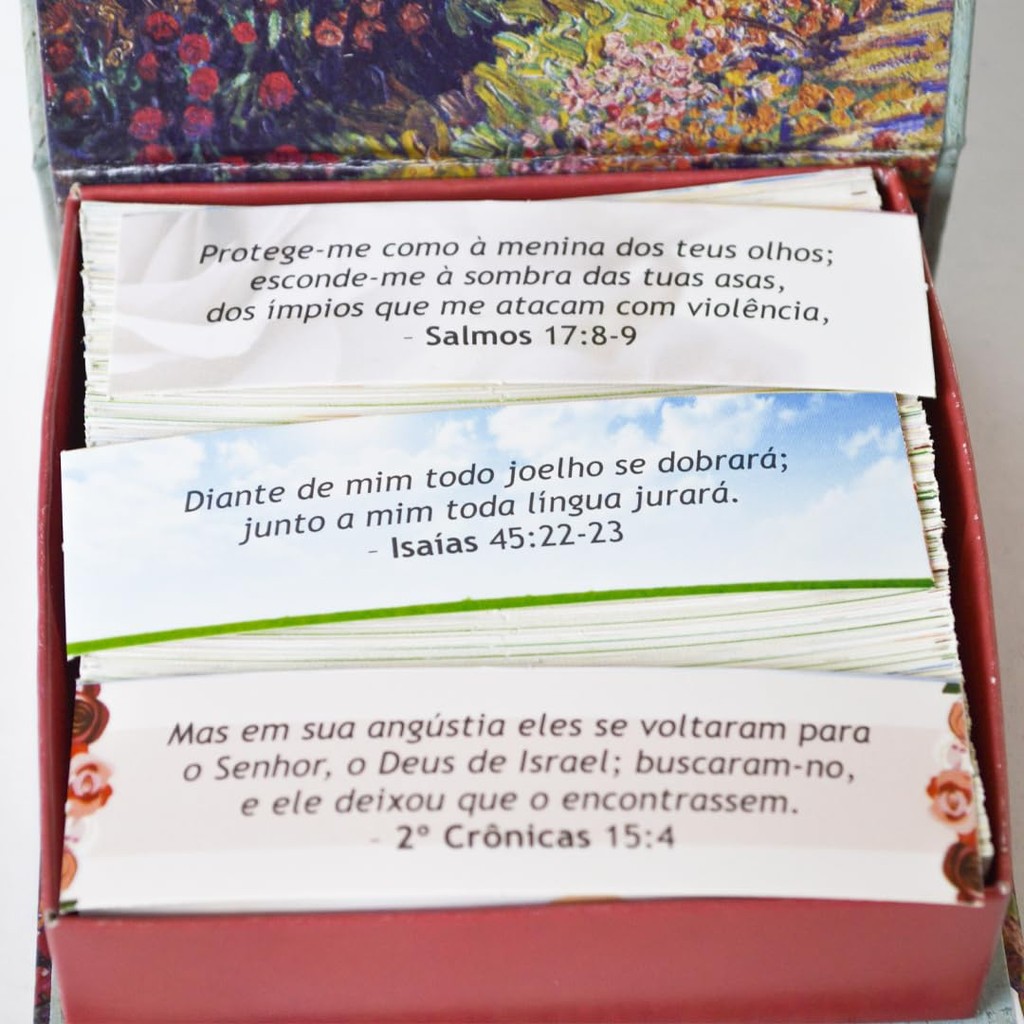 Protege-me como à menina dos teus olhos;
esconde-me à sombra das tuas asas,
dos ímpios que me atacam com violência,
- Salmos 17:8-9
Diante de mim todo joelho se dobrará;
junto a mim toda língua jurará.
- Isaías 45:22-23
Mas em sua angústia eles se voltaram para
o Senhor, o Deus de Israel; buscaram-no,
e ele deixou que o encontrassem.
- 2º Crônicas 15:4